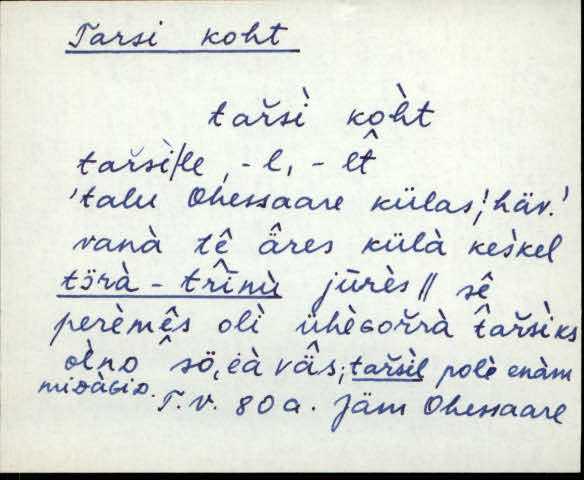 Tarsi koht
tařsì koh̀t
tařsì/le, -l, -lt̂
'talu Ohessaare külas, häv.'
vanà tê âres külà keśkel
tɜ̈rà - trînù jūrès || sê
perèmês olì ühèɢořrà t̂ařsiks
oìno sö, eà vâs; tařsìl polè enàm
miᴅàɢiᴅ.
T.V. 80a. Jäm Ohessaare